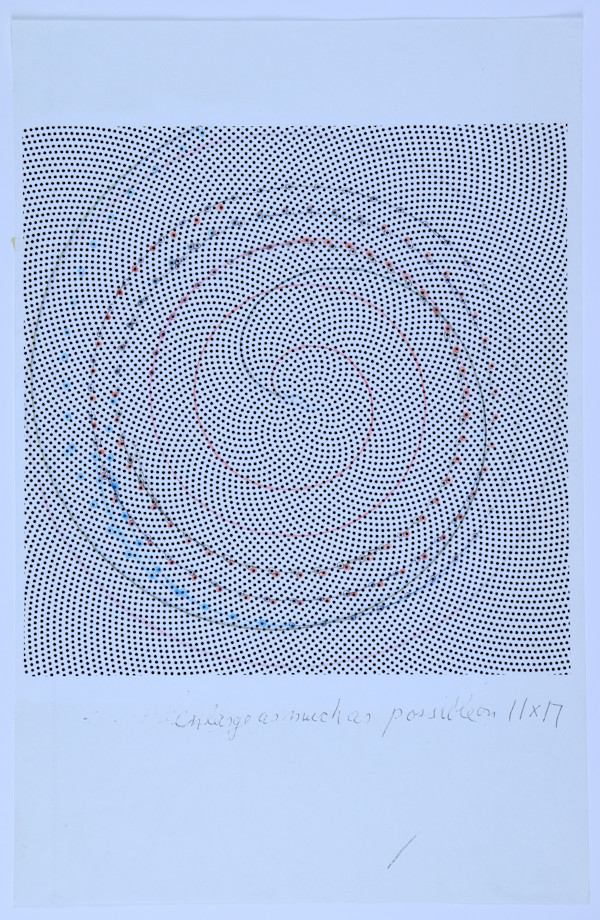 enlarge as much as possible on 11x17